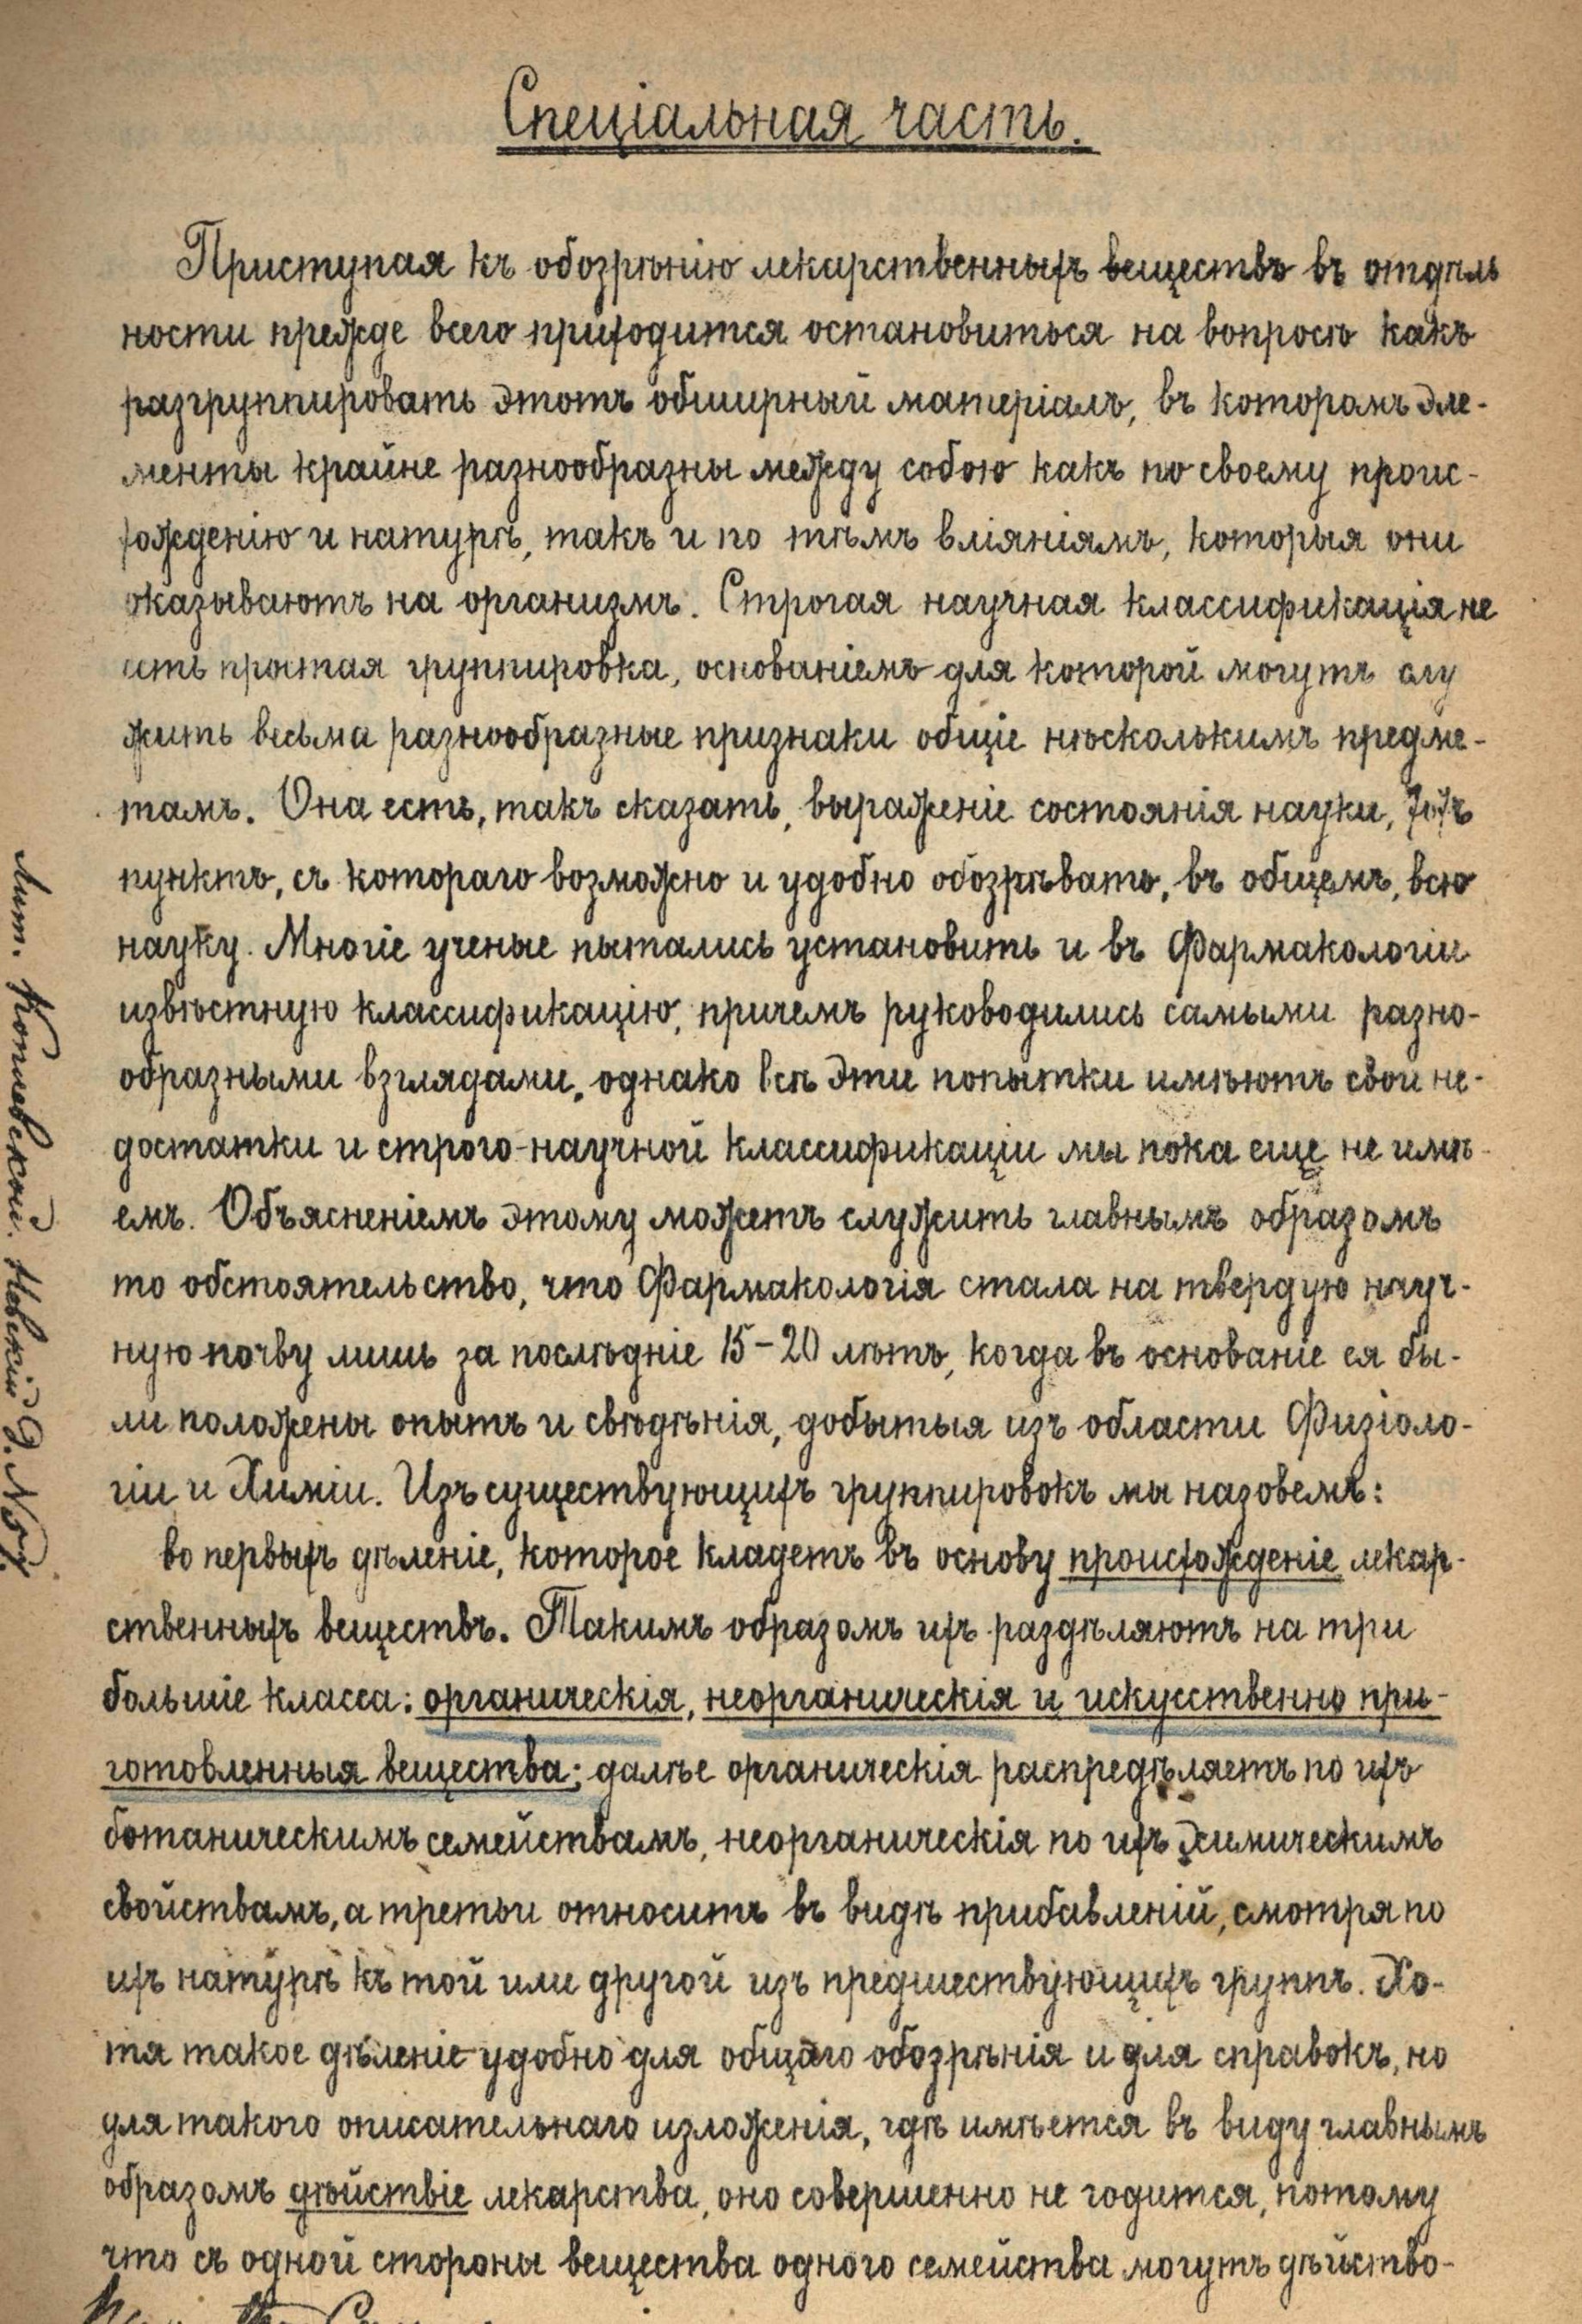 Спеціальная часть.
Приступая къ обозрѣнію лекарственныхъ веществъ въ отдѣль
ности прежде всего приходится остановиться на вопросѣ какъ
разгруппировать этотъ обширный матеріалъ, въ которомъ эле-
менты крайне разнообразны между собою какъ по своему проис-
хожденію и натурѣ, такъ и по тѣмъ вліяніямъ, которыя они
оказываютъ на организмъ. Строгая научная классификація не
есть простая группировка, основаніемъ для которой могутъ слу
жить весьма разнообразные признаки общіе нѣсколькимъ предме-
тамъ. Она есть, такъ сказать, выраженіе состоянія науки,
пунктъ, съ котораго возможно и удобно обозрѣвать, въ общемъ, всю
науку. Многіе ученые пытались установить и въ Фармакологіи
извѣстную классификацію, причемъ руководились самыми разно-
образными взглядами, однако всѣ эти попытки имѣютъ свои не-
достатки и строго-научной классификаціи мы пока еще не имѣ-
емъ. Объясненіемъ этому можетъ служить главнымъ образомъ
то обстоятельство, что Фармакологія стала на твердую науч-
ную почву лишь за послѣдніе 15-20 лѣтъ, когда въ основаніе ея бы-
ли положены опытъ и свѣдѣнія, добытыя изъ области Физіоло-
гіи и Химіи. Изъ существующихъ группировокъ мы назовемъ:
во первыхъ дѣленіе, которое кладетъ въ основу происхожденіе лекар-
ственныхъ веществъ. Такимъ образомъ ихъ раздѣляютъ на три
большіе класса: органическія, неорганическія и искусственно при-
готовленныя вещества; далѣе органическія распредѣляетъ по ихъ
ботаническимъ семействамъ, неорганическія по ихъ Химическимъ
свойствамъ, а третьи относитъ въ видѣ прибавленій, смотря по
ихъ натурѣ къ той или другой изъ предшествующихъ группъ. Хо-
тя такое дѣленіе удобно для общаго обозрѣнія и для справокъ, но
для такого описательнаго изложенія, гдѣ имѣется въ виду главнымъ
образомъ дѣйствіе лекарства, оно совершенно не годится, потому
что съ одной стороны вещества одного семейства могутъ дѣйство-
Лит. Невскій